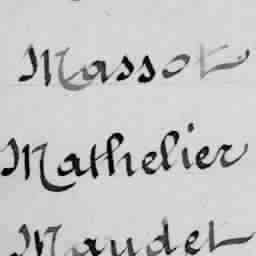 Massot
Mathelier
Maudet